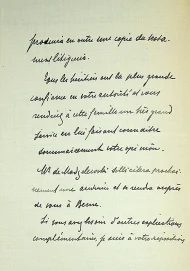 produirai en outre une copie du testa-
ment litigieux.
Tous les héritiers ont la plus grande
confiance en votre autorité et vous
rendriez à cette famille un très grand
service en lui faisant connaître
sommairement votre opinion.
Mr de sollicitera prochai-
nement une audience et se rendra auprès
de vous à Berne.
Si vous avez besoin d'autres explications
complémentaires, je suis à votre disposition